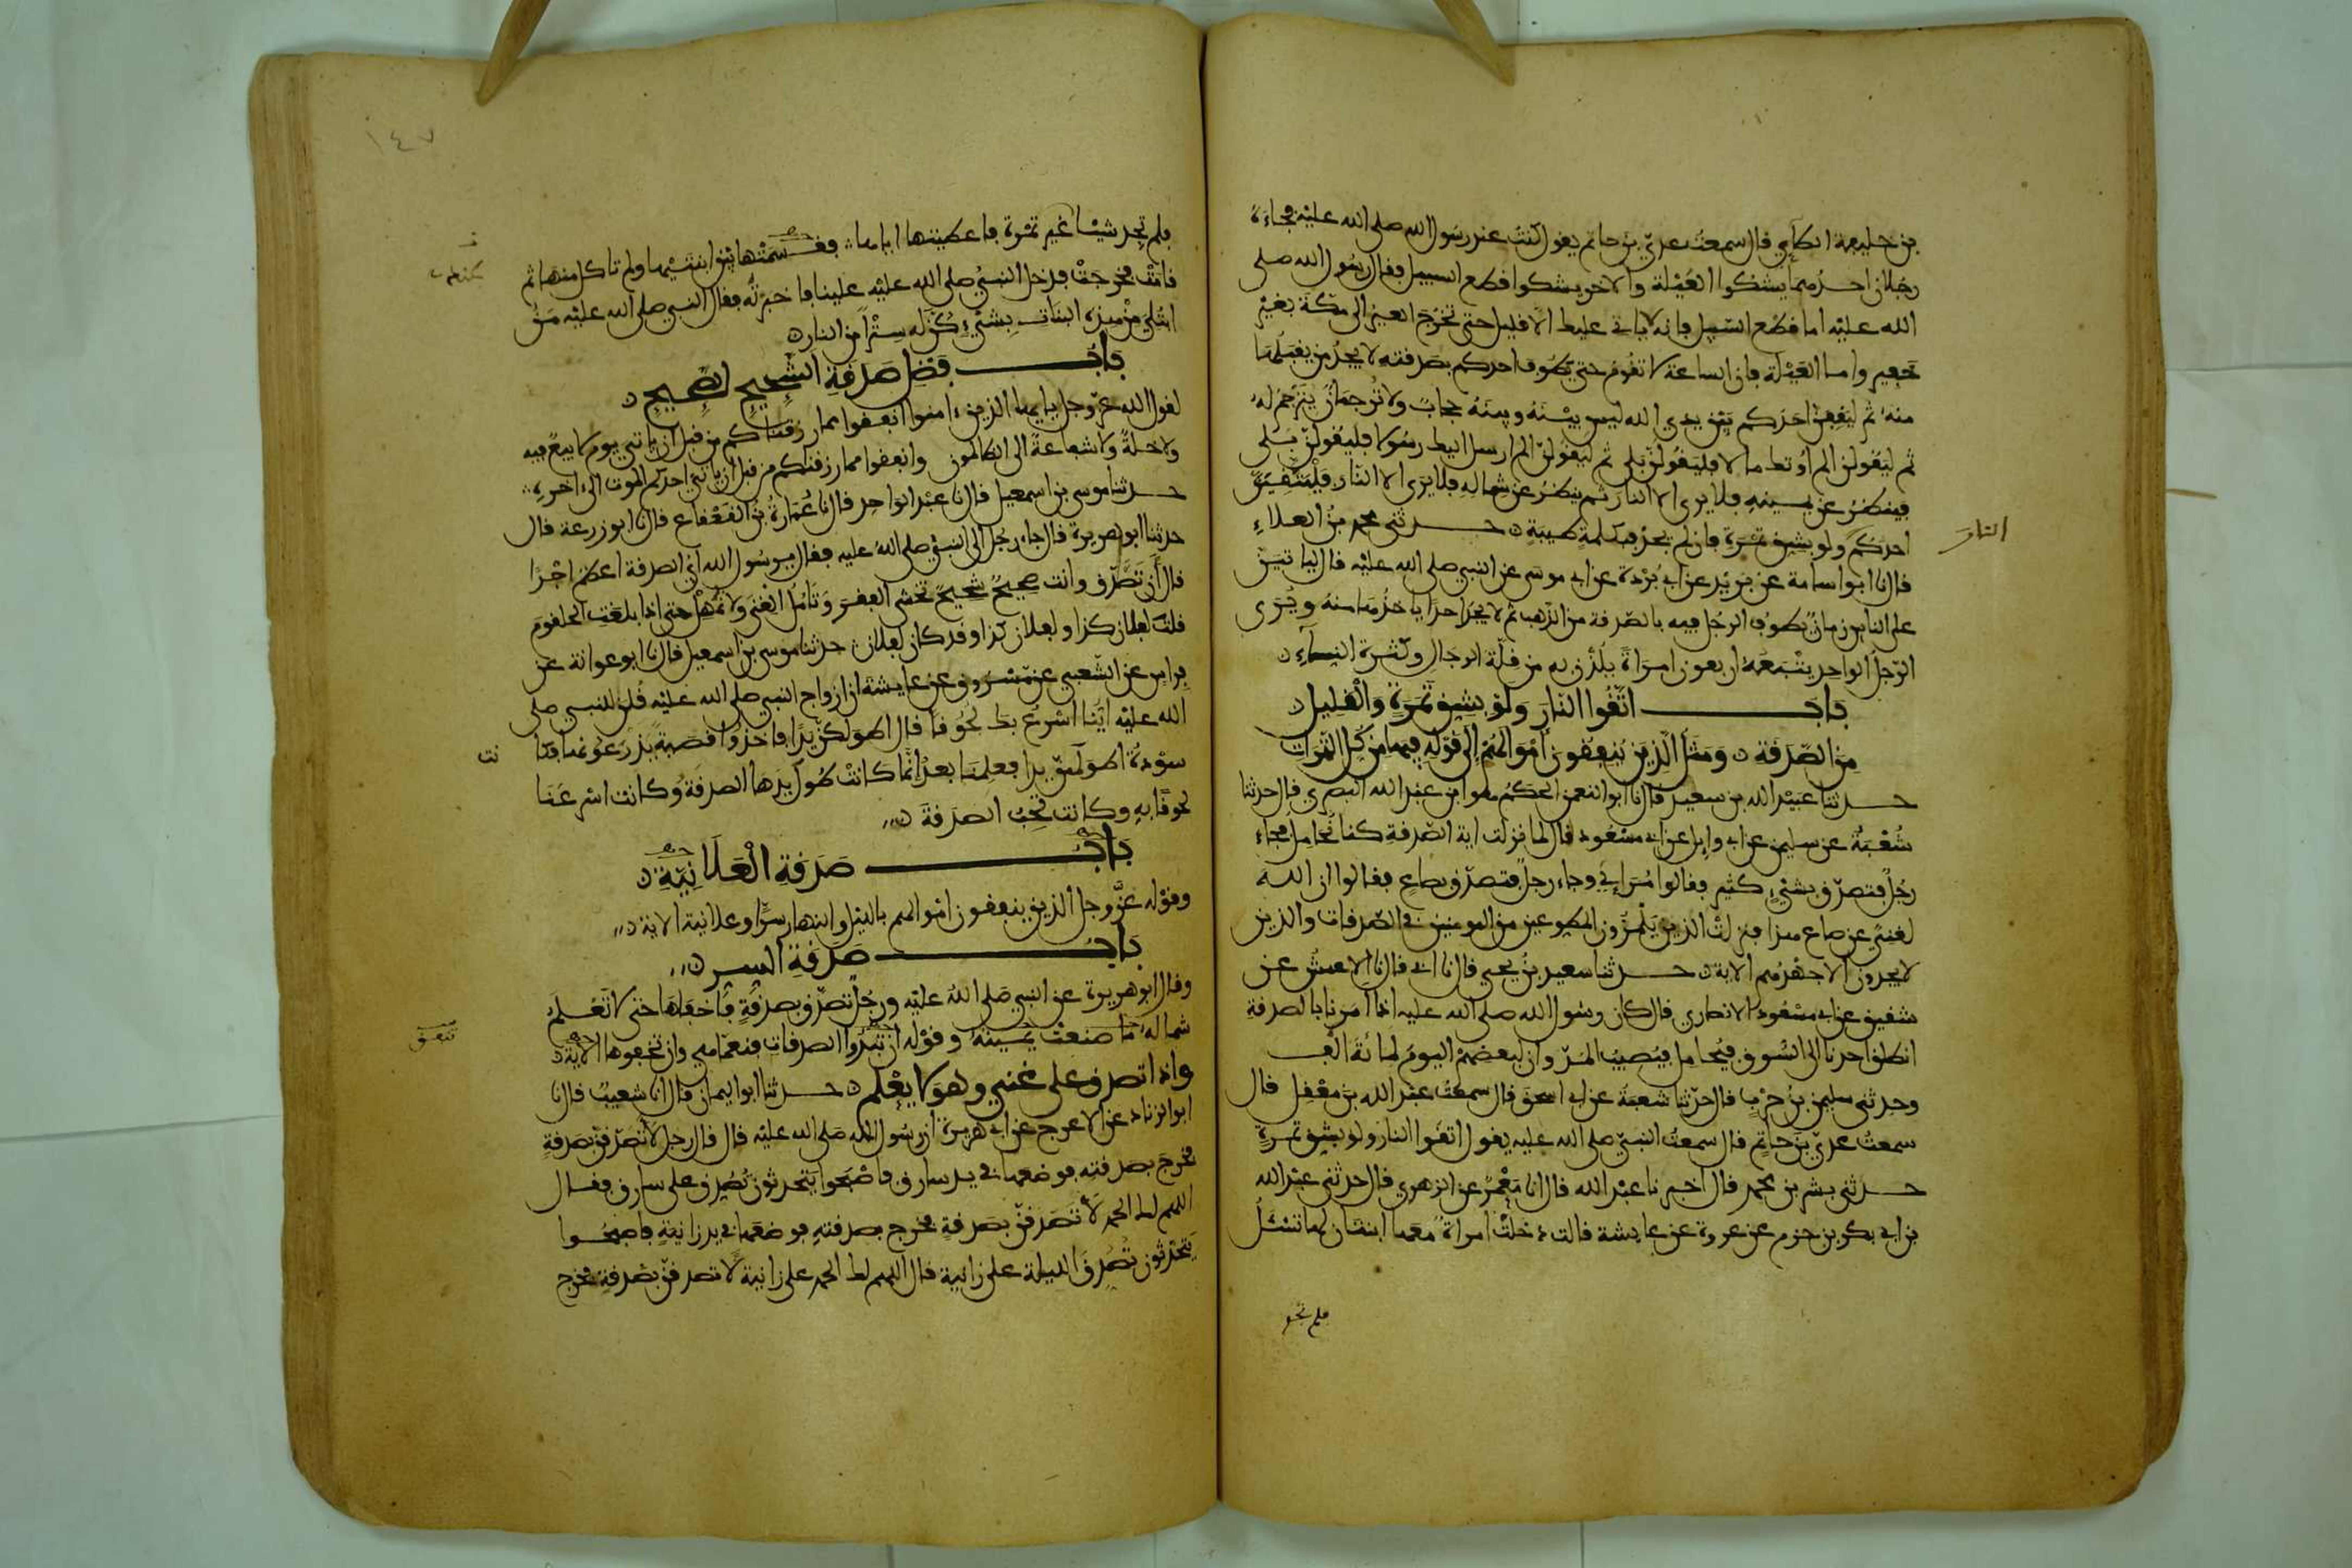 بن خليفة الطائي قال سمعت عدي بن حاتم يقول كنت عند رسول الله صلى الله عليه فجاءه
رجلان احدهما يشكوا العيلة والاخر يشكوا قطع السبيل فقال رسول الله صلى
الله عليه اما قطع السبيل فإنه لا ياتي عليك الا قليل حتى تخرج العير الى مكة بغير
خفير واما العيلة فان الساعة لا تقوم حتى يطوف احدكم بصدقته لا يجد من يقبلها
منه ثم ليقفن احدكم بين يدي الله ليس بينه وبينه حجاب ولا ترجمان يترجم له
ثم ليقولن الم اوتك مالا فليقولن بلى ثم ليقولن الم ارسل اليك رسولا فليقولن بلى
فينظر عن يمينه فلا يرى الا النار ثم ينظر عن شماله فلا يرى الا النار فليتقين
احدكم ولو بشق تمرة فان لم يجد فبكلمة طيبة حدثني محمد بن العلاء
النار
قال نا ابو اسامة عن بريد عن ابي بردة عن ابي موسى عن النبي صلى الله عليه قال لياتين
على الناس زمان يطوف الرجل فيه بالصدقة من الذهب ثم لا يجد احدا ياخذها منه ويرى
الرجل الواحد يتبعه اربعون امراة يلذن به من قلة الرجال وكثرة النساء
باب اتقوا النار ولو بشق تمرة والقليل
من الصدقة ومثل الذين ينفقون اموالهم الى قوله فيها من كل الثمرات
حدثنا عبيد الله بن سعيد قال نا ابو النعمن الحكم هو ابن عبد الله البصري قال حدثنا
شعبة عن سليمن عن ابي وايل عن ابي مسعود قال لما نزلت اية الصدقة كنا نحامل فجاء
رجل فتصدق بشيء كثير فقالوا مراىي وجاء رجل فتصدق بصاع فقالوا ان الله
لغني عن صاع هذا فنزلت الذين يلمزون المطوعين من المومنين في الصدقات والذين
لا يجدون الا جهدهم الاية حدثنا سعيد بن يحيى قال نا ابي قال نا الاعمش عن
شقيق عن ابي مسعود الانصاري قال كان رسول الله صلى الله عليه اذا امرنا بالصدقة
انطلق احدنا الى السوق فيحامل فيصيب المد وان لبعضهم اليوم لمائة الف
وحدثني سليمن بن حرب قال حدثنا شعبة عن ابي اسحق قال سمعت عبد الله بن معقل قال
سمعت عدي بن حاتم قال سمعت النبي صلى الله عليه يقول اتقوا النار ولو بشق تمرة
حدثني بشر بن محمد قال اخبرنا عبد الله قال انا معمر عن الزهري قال حدثني عبد الله
بن ابي بكر بن حزم عن عروة عن عايشة قالت دخلت امراة معها ابنتان لها تسئل
فلم تجد
١٤٧
فلم تجد شيئا غير تمرة فاعطيتها اياها فقسمتها بين ابنتيها ولم تاكل منها ثم
قامت فخرجت فدخل النبي صلى الله عليه علينا فاخبرته فقال النبي صلى الله عليه من
ابتلي من هذه البنات بشيء كن له سترا من النار
باب فضل صدقة الشحيح الصحيح
لقول الله عز وجل يايها الذين امنوا انفقوا مما رزقناكم من قبل ان ياتي يوم لا بيع فيه
ولا خلة ولا شفاعة الى الظالمون وانفقوا مما رزقنكم من قبل ان ياتي احدكم الموت الى اخره
حدثنا موسى بن اسمعيل قال نا عبد الواحد قال نا عمارة بن القعقاع قال نا ابو زرعة قال
حدثنا ابو هريرة قال جاء رجل الى النبي صلى الله عليه فقال يرسول الله اي الصدقة اعظم اجرا
قال أن تصدق وانت صحيح شحيح تخشى الفقر وتامل الغنى ولا تمهل حتى اذا بلغت الحلقوم
قلت لفلان كذا ولفلان كذا وقد كان لفلان حدثنا موسى بن اسمعيل قال نا ابو عوانة عن
فراس عن الشعبي عن مسروق عن عايشة ان ازواج النبي صلى الله عليه قلن للنبي صلى
الله عليه اينا اسرع بك لحوقا قال اطولكن يدا فاخذوا قصبة يذرعونها فكا
نت
سودة اطولهن يدا فعلمنا بعد انما كانت طول يدها الصدقة وكانت اسرعنا
لحوقا به وكانت تحب الصدقة
باب صدقة العلانية
وقوله عز وجل الذين ينفقون اموالهم بالليل والنهار سرا وعلانية الاية
باب صدقة السر
وقال ابو هريرة عن النبي صلى الله عليه ورجل تصدق بصدقة فاخفاها حتى لا تعلم
شماله ما صنعت يمينه وقوله ان تبدوا الصدقات فنعما هي وان تخفوها الاية
تنفق
واذا تصدق على غني وهو لا يعلم حدثنا ابو اليمان قال انا شعيب قال نا
ابو الزناد عن الاعرج عن ابي هريرة ان رسول الله صلى الله عليه قال قال رجل لاتصدقن بصدقة
فخرج بصدقته فوضعها في يد سارق فاصبحوا يتحدثون تصدق على سارق فقال
اللهم لك الحمد لاتصدقن بصدقة فخرج بصدقته فوضعها في يد زانية فاصبحوا
يتحدثون تصدق الليلة على زانية قال اللهم لك الحمد على زانية لاتصدقن بصدقة فخرج